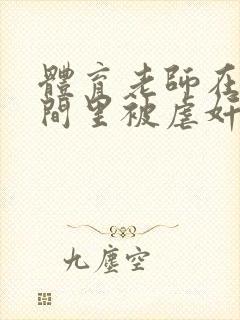 體育老師在
間里被虐奸
九塵空